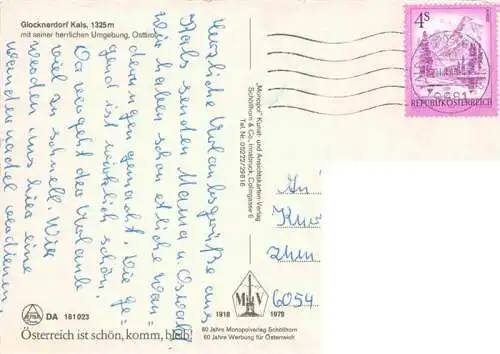 Glocknerdorf Kals, 1325m
mit seiner herrlichen Umgebung, Osttirol
Herzliche Urlaubsgrüße aus
Kals senden Mama u. Oswald
Wir haben schon etliche Wan-
derungen gemacht. Die Ge-
gend ist wirklich schön.
Da vergeht der Urlaub
viel zu schnell. Wir
werden uns hier eine
wieder
DA 181023
Österreich ist schön, komm, bleib!
"Monopol" Kunst- und Ansichtskarten-Verlag
Schöllhorn & Co., Innsbruck, Colingasse 6
Tel. Nr. 05222/29816
1918 MV 1978
60 Jahre Monopolverlag Schöllhorn
60 Jahre Werbung für Österreich
4S
REPUBLIK ÖSTERREICH
9981
An
6054